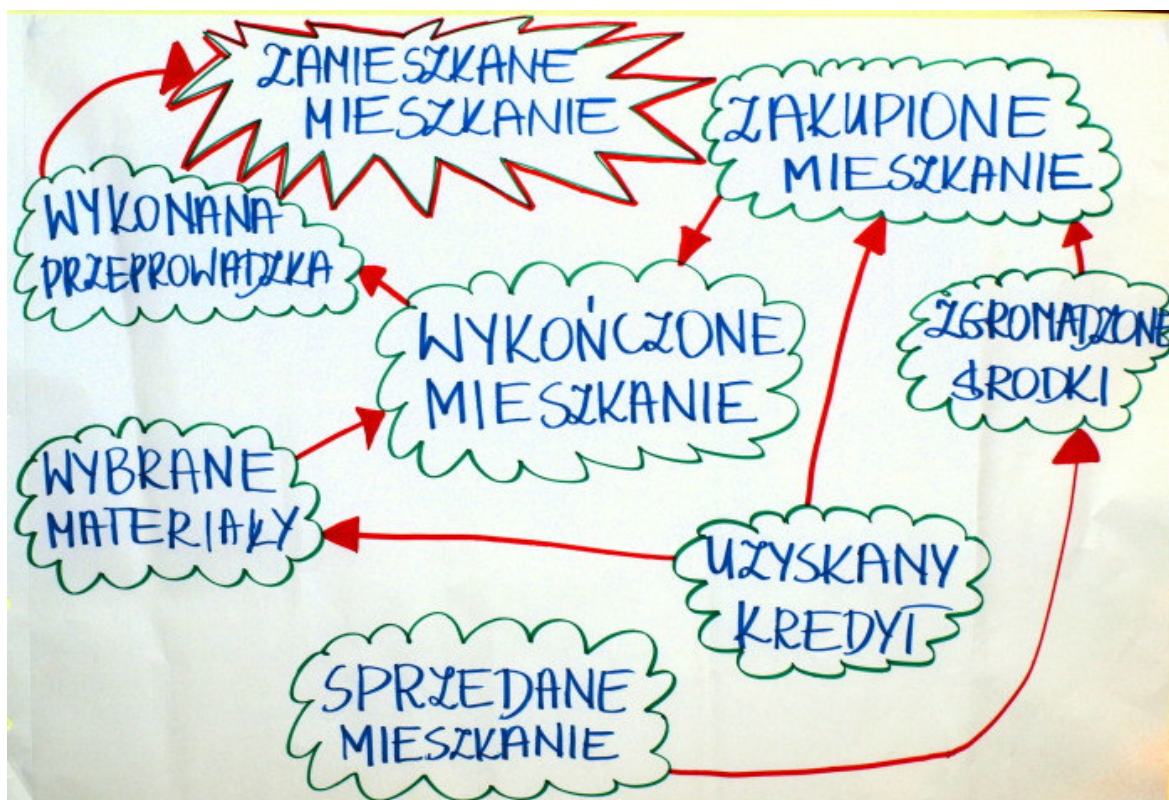 ZAMIESZKANE
MIESZKANIE
ZAKUPIONE
MIESZKANIE
WYKONANA
PRZEPROWADZKA
WYKOŃCZONE
MIESZKANIE
ZGROMADZONE
ŚRODKI
WYBRANE
MATERIAŁY
UZYSKANY
KREDYT
SPRZEDANE
MIESZKANIE